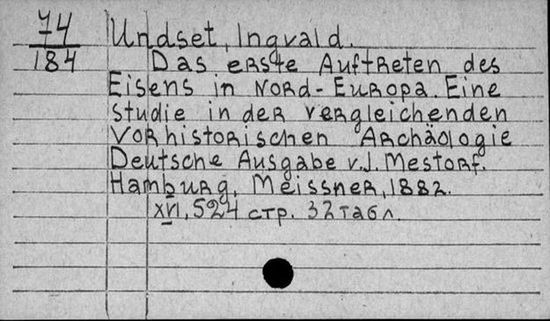 74
184
Undset, Ingvald.
Das erste Auftreten des
Eisens in Nord-Europa. Eine
studie in der vergleichenden
vorhistorischen Archäologie
Deutsche Ausgabe v. J. Mestorf.
Hamburg, Meissner, 1882.
XVI, 524 стр. 32 табл.